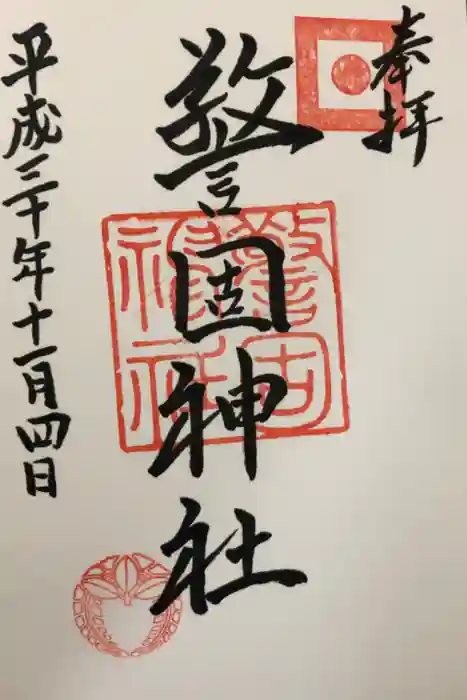 奉拝
警固神社
警固神社
平成三十年十一月四日